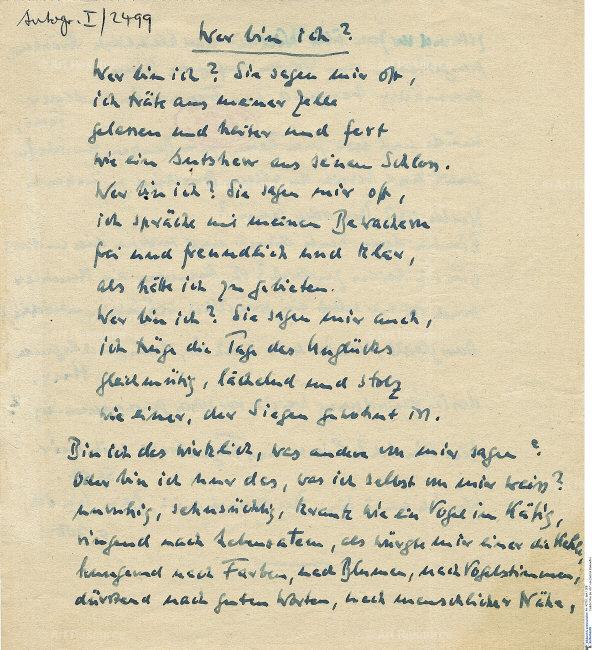 Autogr. I/2499
Wer bin ich?
Wer bin ich? Sie sagen mir oft,
ich träte aus meiner Zelle
gelassen und heiter und fest
wie ein Gutsherr aus seinem Schloss.
Wer bin ich? Sie sagen mir oft,
ich spräche mit meinen Bewachern
frei und freundlich und klar,
als hätte ich zu gebieten.
Wer bin ich? Sie sagen mir auch,
ich trüge die Tage des Unglücks
gleichmütig, lächelnd und stolz
wie einer, der Siegen gewohnt ist.
Bin ich das wirklich, was andere von mir sagen?
Oder bin ich nur das, was ich selbst von mir weiss?
unruhig, sehnsüchtig, krank wie ein Vogel im Käfig,
ringend nach Lebensatem, als würgte mir einer die Kehle,
hungernd nach Farben, nach Blumen, nach Vogelstimmen,
dürstend nach guten Worten, nach menschlicher Nähe,